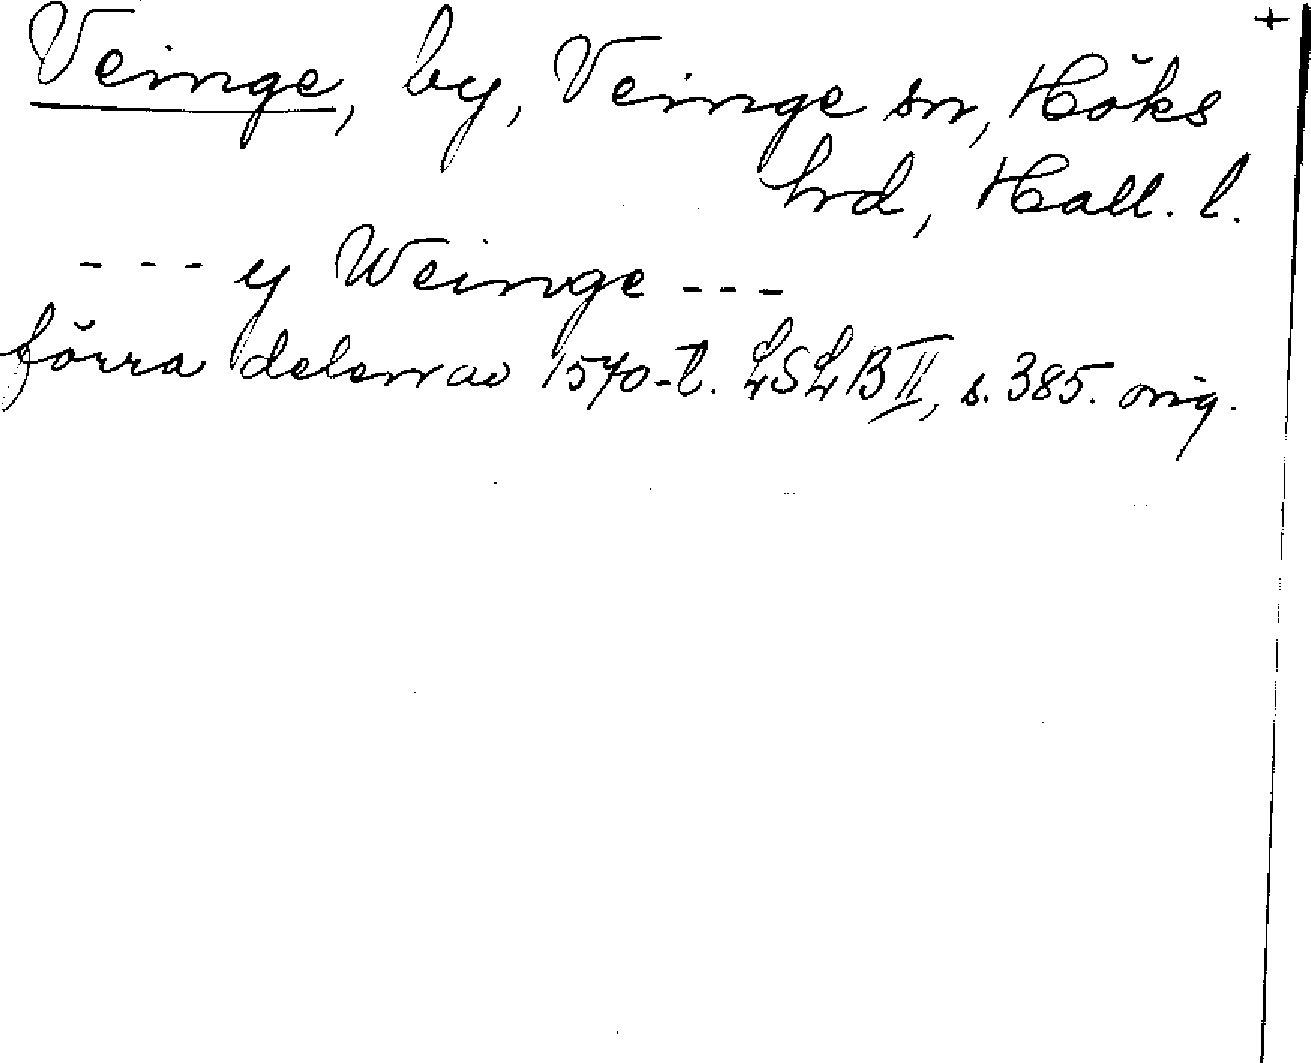 +
Veinge, by, Veinge sn, Höks
hrd, Hall. l.
--- y Weinge ---
förra delen av 1570-t. LSLB II, s. 385. orig.